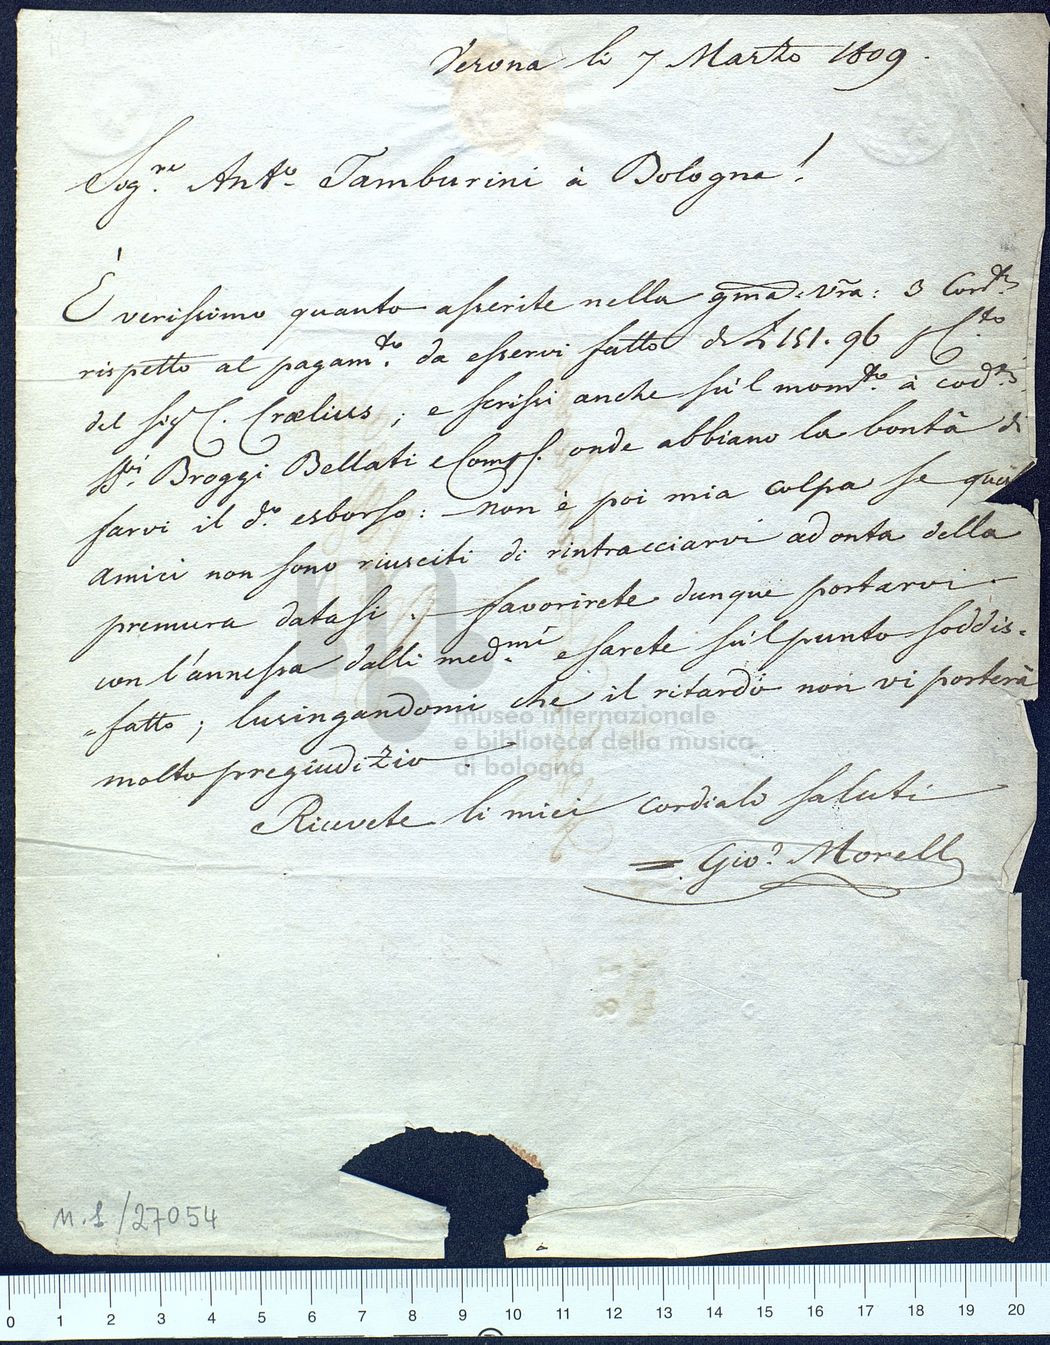 Verona li 7 Marzo 1809.
Sig.re Ant.o Tamburini à Bologna!
È verissimo quanto asserite nella gma. Vra: 3 Cor.te
rispetto al pagam.to da esservi fatto di £ 151. 96 p C.to
del Sig C. Crælius; e scrissi anche sù'l mom.to à cod.ti
S.ri Broggi Bellati e Comp. onde abbiano la bontà di
farvi il d.o esborso: non è poi mia colpa se quei
amici non sono riusciti di rintracciarvi ad onta della
premura datasi. favorirete dunque portarvi
con l'annessa dalli med.mi e sarete sù'l punto soddis=
=fatto; lusingandomi che il ritardo non vi porterà
molto pregiudizio.
Ricevete li miei cordiali saluti
Gio. Morell
museo internazionale
e biblioteca della musica
di bologna
M.1/27054
0 1 2 3 4 5 6 7 8 9 10 11 12 13 14 15 16 17 18 19 20